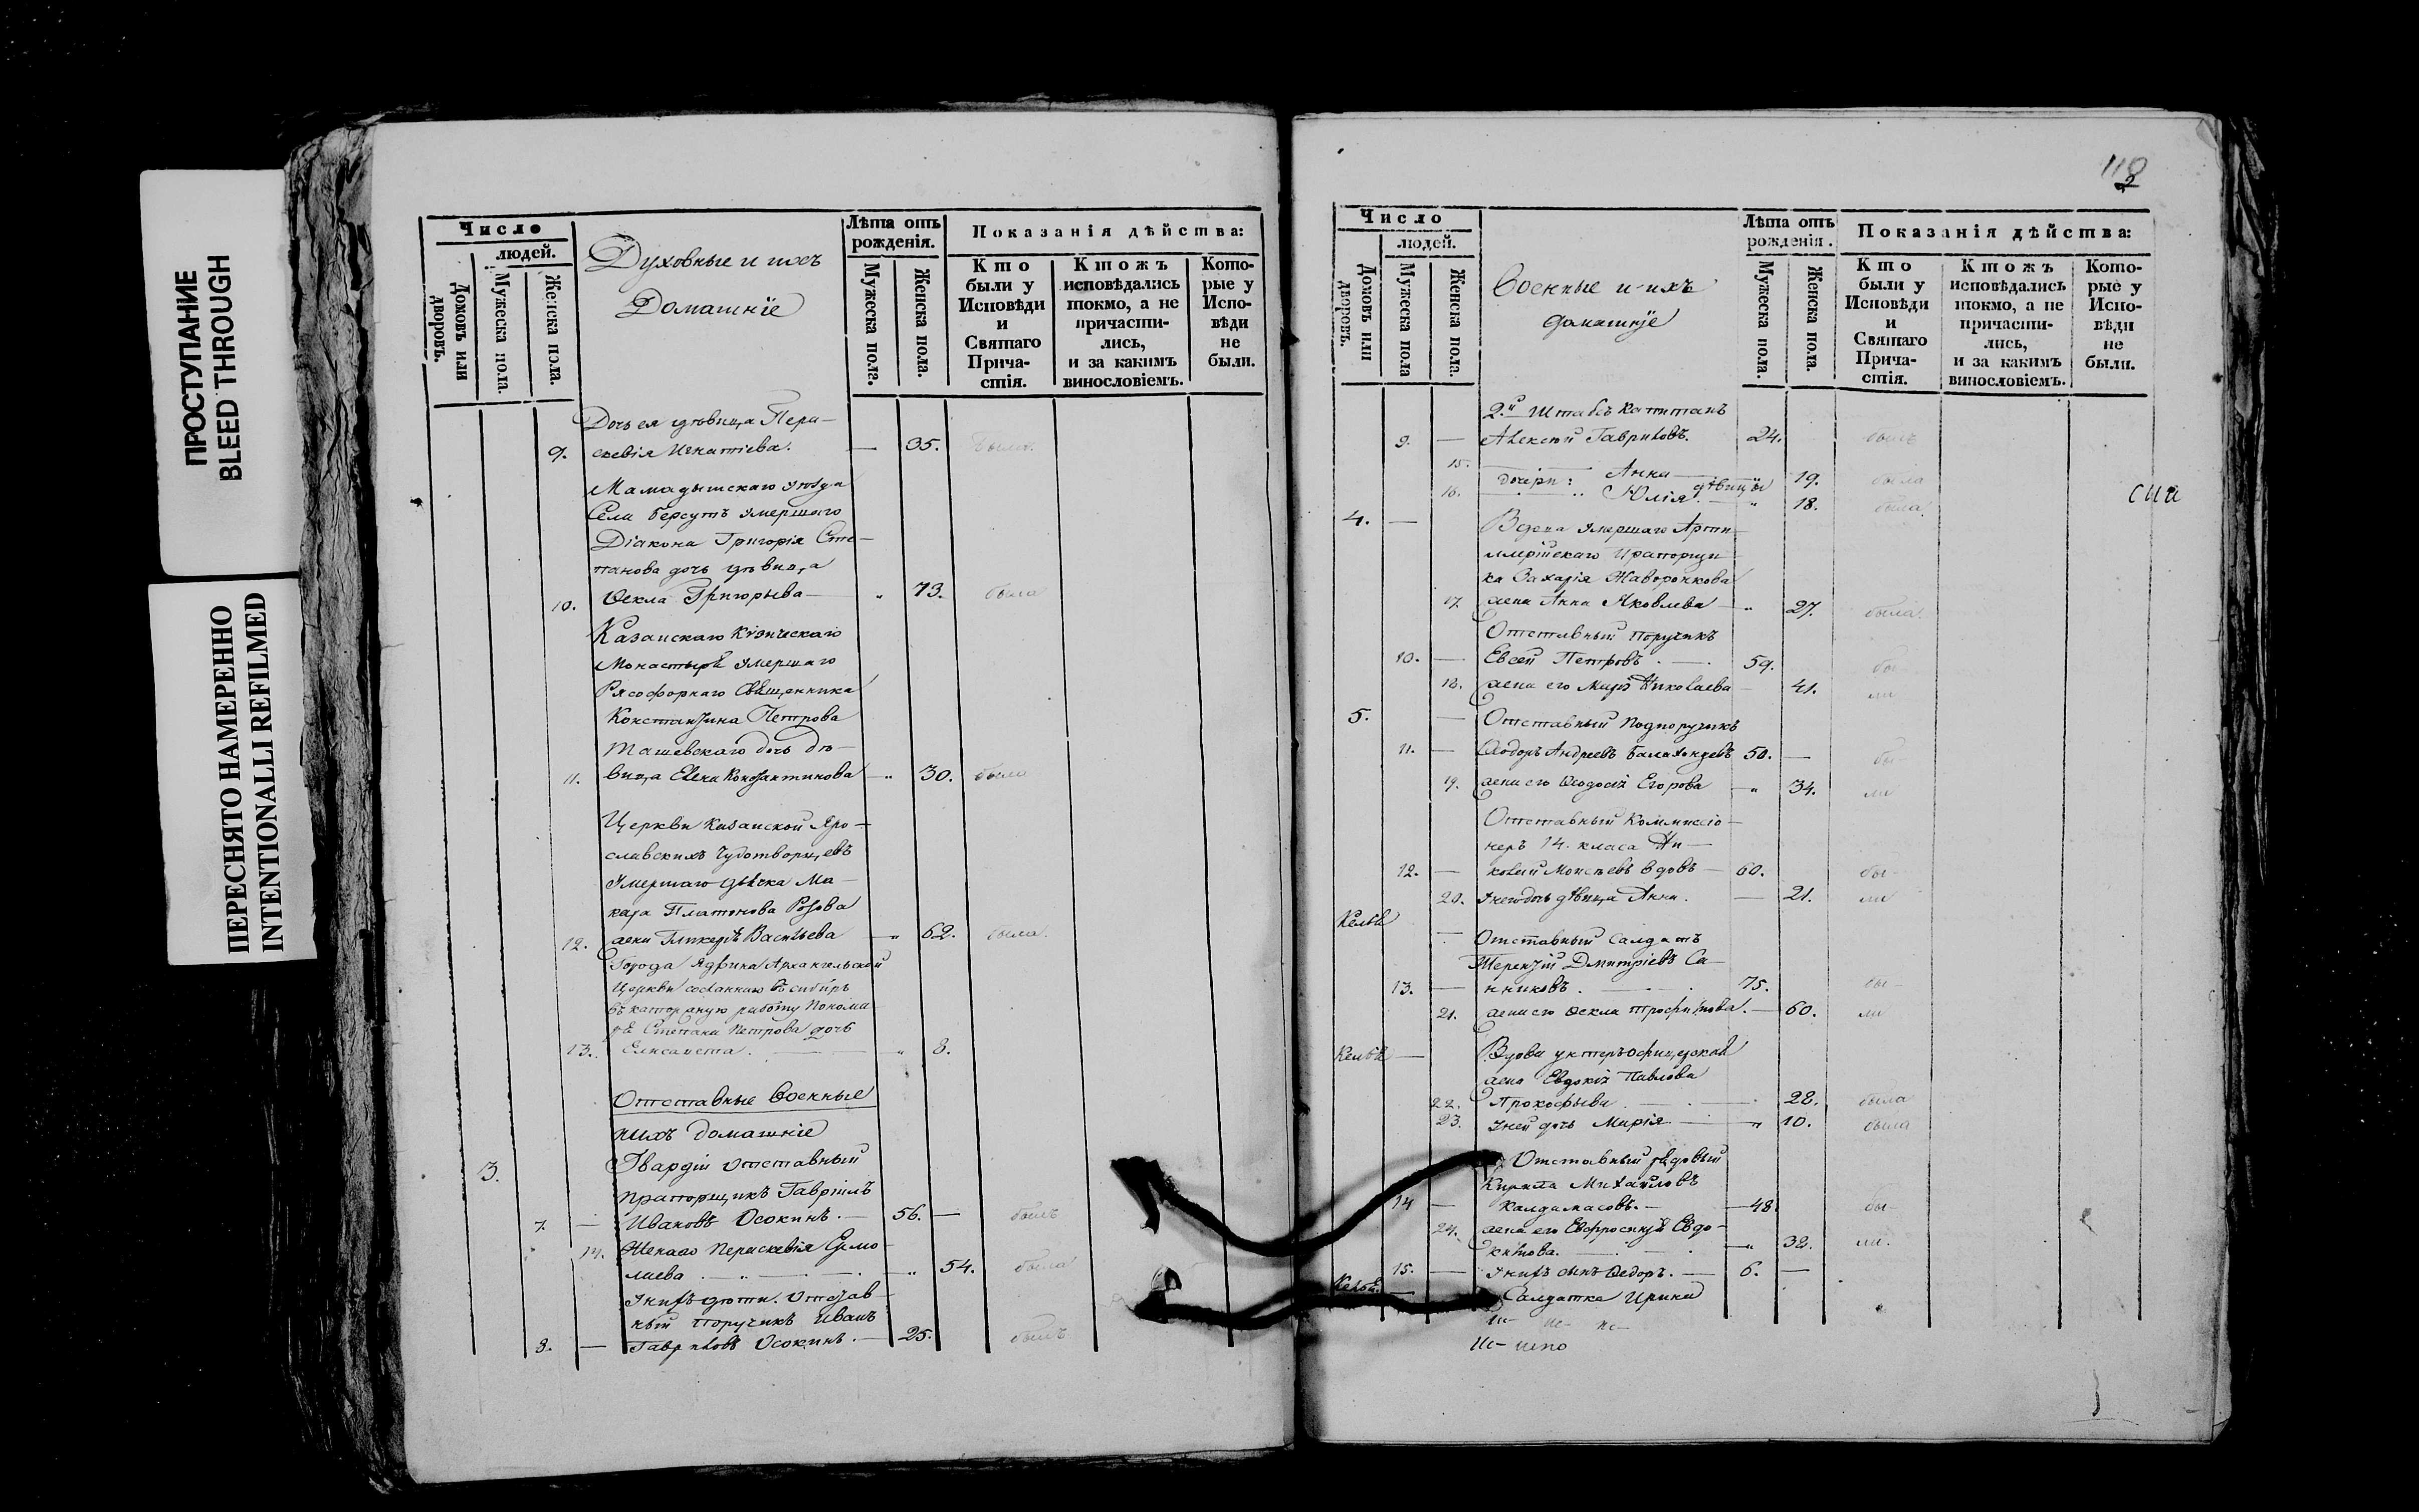 ПРОСТУПАНИЕ
BLEED THROUGH
ПЕРЕСНЯТО НАМЕРЕННО
INTENTIONALLI REFILMED
Число
людей.
Домовъ или дворовъ.
Мужеска пола.
Женска пола.
Духовные и ихъ
Домашніе
Лѣта отъ рожденія.
Мужеска пола.
Женска пола.
Показанія дѣйства:
Кто были у Исповѣди и Святаго Прича-стія.
Ктожъ исповѣдались токмо, а не причасти-лись, и за какимъ винословіемъ.
Кото-рые у Испо-вѣди не были.
Дочь ея дѣвица Пера-
9. скевія Игнатіева. — 35. была.
Мамадышскаго уѣзда
Села Берсутъ умершаго
Діакона Григорія Сте-
панова дочь дѣвица
10. Ѳекла Григорьева — " 73. была
Казанскаго Кизическаго
Монастыря умершаго
Рясофорнаго Священника
Константина Петрова
Ташевскаго дочь дѣ-
11. вица Елена Константинова — " 30. была
Церкви Казанской Яро-
славскихъ Чудотворцевъ
Умершаго дьячка Ма-
кара Платонова Розова
12. жена Гликерія Васильева — " 62. была.
Города Ядрина Архангельской
Церкви сосланнаго въ сибирь
въ каторжную работу Понома-
ря Степана Петрова дочь
13. Елисавета. — " 8.
Отставные Военные
и ихъ домашніе
3. Гвардіи отставный
прапорщикъ Гавріилъ
7. — Ивановъ Осокинъ. — 56. — былъ
14. Жена его Параскевія Ермо-
лаева — " 54. была
У нихъ дѣти. Отстав-
ный поручикъ Иванъ
8. — Гавриловъ Осокинъ. — 25. былъ
118
2
Число
людей.
Домовъ или дворовъ.
Мужеска пола
Женска пола.
Военные и ихъ
домашніе
Лѣта отъ рожденія.
Мужеска пола.
Женска пола.
Показанія дѣйства:
Кто были у Исповѣди и Святаго Прича-стія.
Ктожъ исповѣдались токмо, а не причасти-лись, и за какимъ винословіемъ.
Кото-рые у Испо-вѣди не были.
2.й Штабсъ Капитанъ
9. — Алексѣй Гавриловъ. 24. былъ
15. дочери: Анна — дѣвицы 19. была
16. " Юлія. — " 18. была.
сии
4. — Вдова умершаго Арти-
ллерійскаго Прапорщи-
ка Захарія Жаворонкова
17. жена Анна Яковлева — " 27. была.
Отставный поручикъ
10. — Евсей Петровъ. — 59. бы-
18. жена его Марія Николаева — 41. ли
5. — Отставный Подпоручикъ
11. — Ѳеодоръ Андреевъ 50. — бы-
19. жена его Ѳеодосія Егорова — " 34. ли
Отставный Коммиссіо-
неръ 14. класа Ни-
12. — колай Моисеевъ вдовъ — 60. бы-
20. У него дочь дѣвица Анна. — 21. ли
Келья — Отставный Салдатъ
Терентій Дмитріевъ Са-
13. — нниковъ. 75. бы-
21. жена его Ѳекла Трофимова. — 60. ли
Келья — Вдова унтеръ офицерская
жена Евдокія Павлова
22. Прокофьева — 28. была
23. У ней дочь Марія — " 10. была
Отставный рядовый
Кирила Михайловъ
14 — Калдамасовъ. — 48 бы-
24. жена его Евфросинія Евдо-
кимова. — " 32. ли.
15. — У нихъ сынъ Ѳедоръ. — 6. —
Келья — Салдатка Ирина